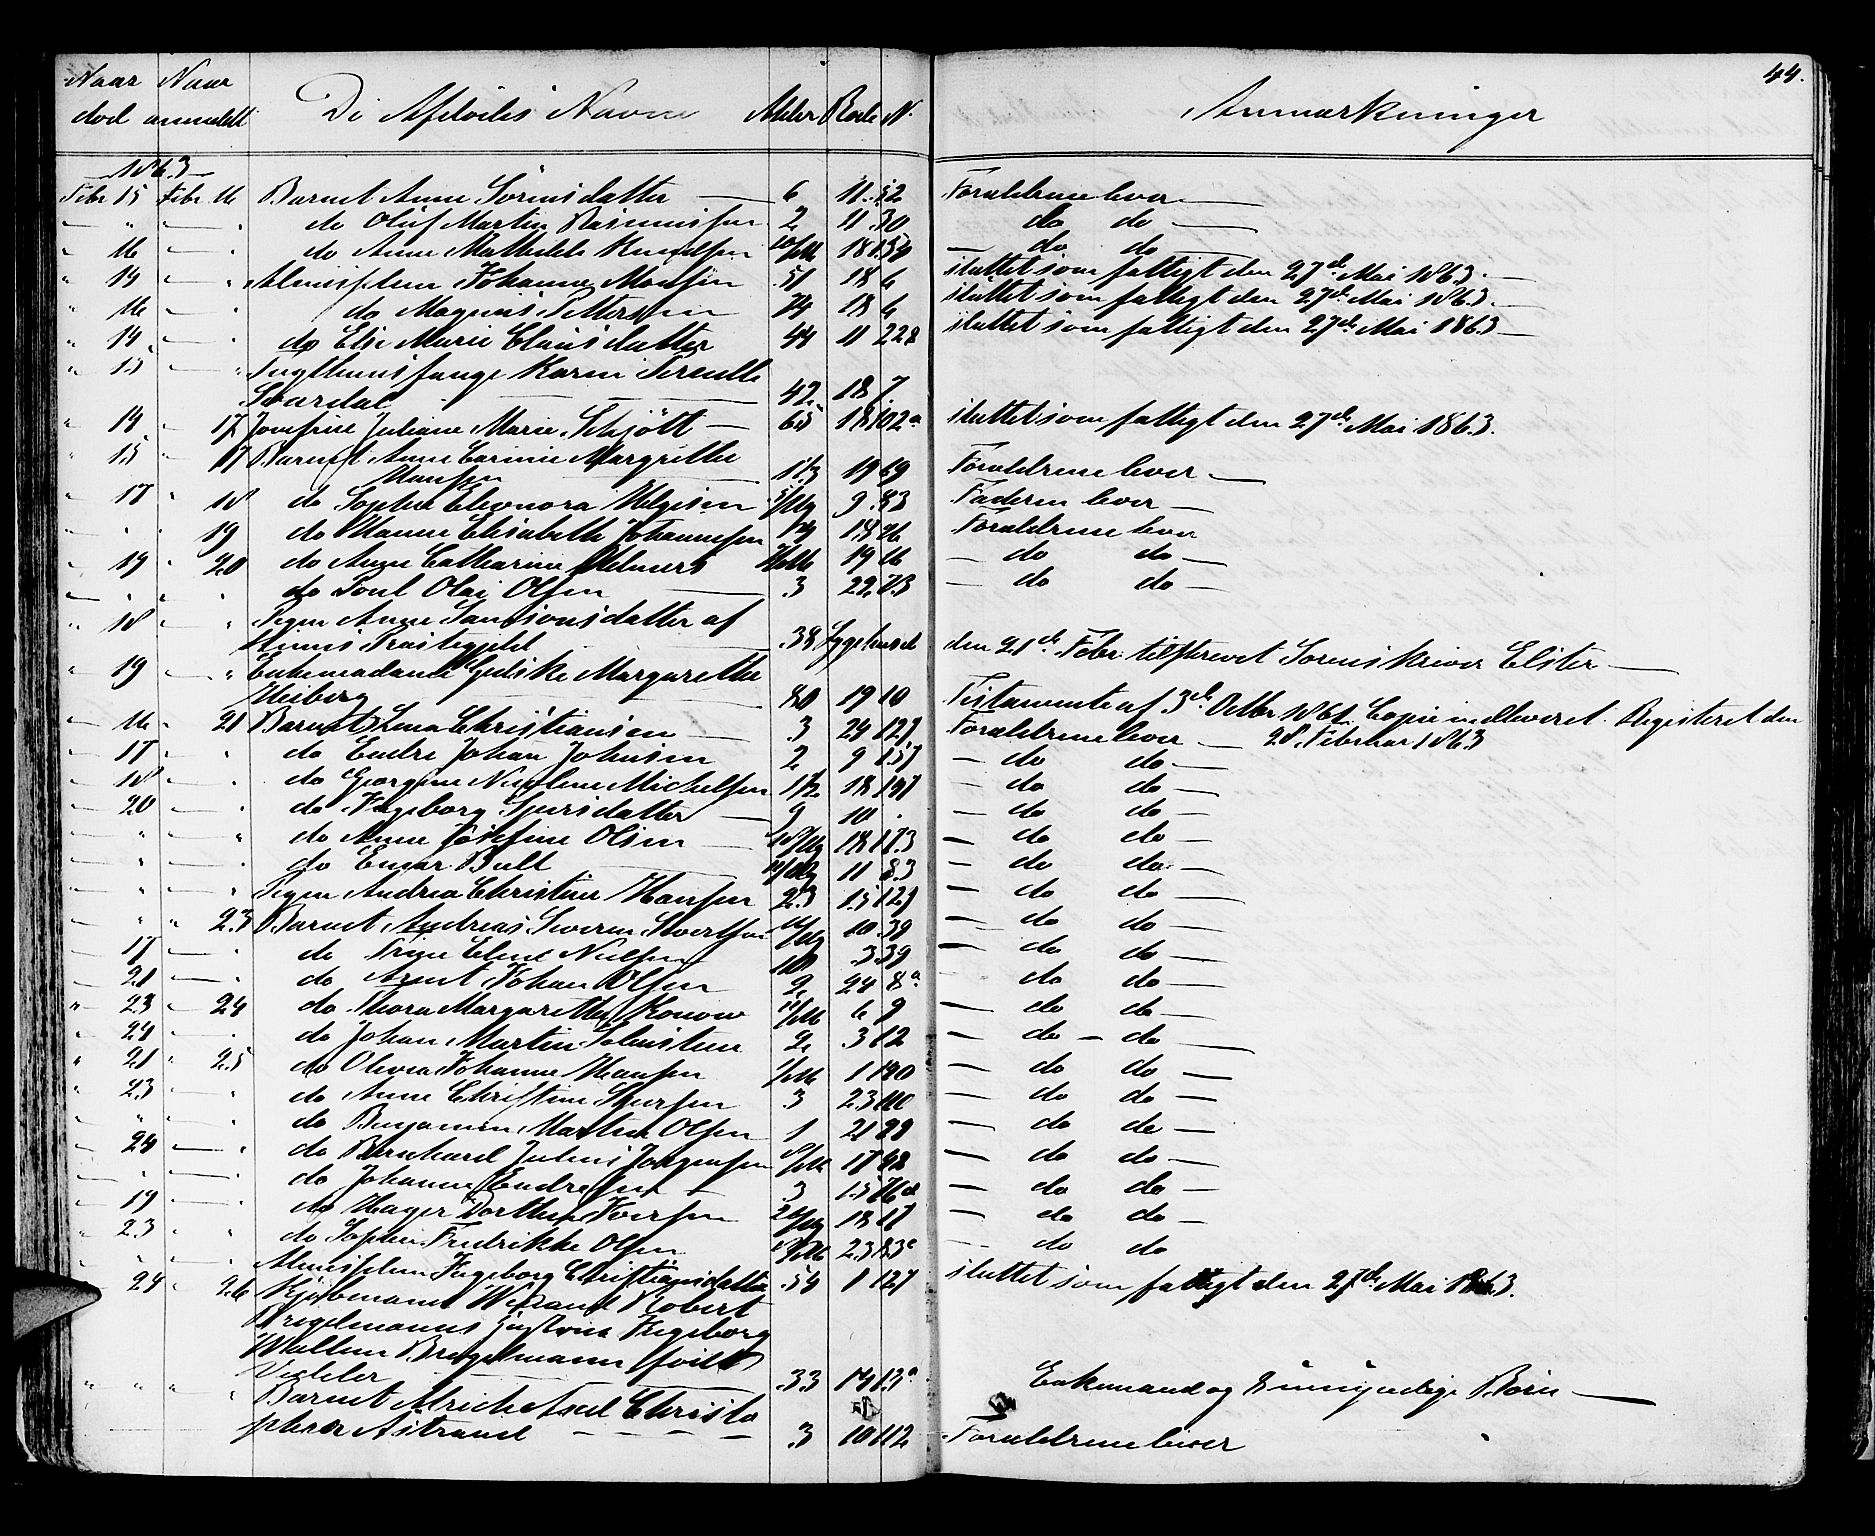 44.
Naar død Naar anmeldt De Afdødes Navne Alder Rode N. Anmærkninger
1863
Febr 15 Febr 16 Barnet Anne Sörensdatter — 6 11 52 Forældrene lever —
— " — " do Oluf Martin Rasmussen 2 11 30 do do —
" 16 — " do Anne Mathilde Knudsen 10/M 18 — do do —
" 14 — " Almislem Johanne Monsen 51 18 6 sluttet som fattigt den 27de Mai 1863. —
" 16 — " do Magnus Pettersen 74 18 6 sluttet som fattigt den 27de Mai 1863. —
" 14 — " do Else Marie Clausdatter 44 11 228 sluttet som fattigt den 27de Mai 1863 —
" 15 — " Tugthusfange Karen Pernille
Svardal — 42 18 7.
" 14 — 17 Jomfrue Juliane Marie Schjött — 65 18 102a sluttet som fattigt den 27de Mai 1863.
" 15 " 17 Barnet Anne Margrethe
Hansen — 1 1/3 19 69 Forældrene lever —
" 17 " 18 do Sophie Eleonora Helgesen 9 83 Faderen lever —
" " 19 do Hanne Elisabeth Johannesen 18 76 Forældrene lever
" 19 " 20 do Anne Catharine Helmers 19 16 — do do —
— " " do Poul Olai Olsen — 3 22 73 — do do —
" 18 — " Pigen Anne Samsonsdatter af
Præstegjeld — 38 Sygehuset den 21de Febr tilskrevet Sorenskriver Elster —
" 19 — " Enkemadame Giedske Margarethe
Heiberg — 80 19 10 Testamente af 3de Octbr 1861. Copie indleveret. Registeret den
— 16 " 21 Barnet Lena Christiansen — 3 24 127 Forældrene lever — 28. Februar 1863
— 17 — " do Endre Johan Johnsen 2 9 157 — do do —
— 18 — " do Georgine Nicoline Michelsen 1 1/2 18 — do do —
— 20 — " do Ingeborg Sjursdatter — 9 10 . — do do —
— " — " do Anne Josefine Olsen — 18 173 — do do —
— " — " do Einar Bull — 11 83 — do do —
— " — " Pigen Andrea Christine Hansen 23 15 127 — do do —
" " 23 Barnet Andreas Severin Sivertsen 10 39 — do do —
— 17 — " do Trine Elene Nielsen 10 3 39 — do do —
— 21 — " do Arnt Johan Olsen 2 24 8a — do do —
" 23 " 24 do Thora Margarethe Konow 11/M 6 9 — do do —
— 24 — " do Johan Martin 2 3 12 — do — do —
" 21 " 25 do Olivia Johanne Hansen 1 190 — do do —
" 23 — " do Anne Christine Sjursen 3 23 110 — do do —
" " — " do Benjamin Martin Olsen 1 21 — do do —
— 24 — " do Bernhard Julius Jörgensen 17 98 — do do —
— " — " do Johanne Endresen — 3 15 — do do —
— 19 — " do Hager Dorthea Iversen 18 17 — do do —
— 23 " " do Sophie Fredrikke Olsen 23 83c — do do
— " — " Almislem Ingeborg Christiansdatter 54 1 127 sluttet som fattigt den 27de Mai 1863.
— 24 " 26 Kjöbmand Robert
Brigelmanns Ingeborg
Wallem Brigelmann född
Vedeler — 33 14 13a Enkemand og 8 umyndige Börn —
" " " " Barnet Ulrich Axel Christo
pher Astrand — — — — 3 10 112 Forældrene lever